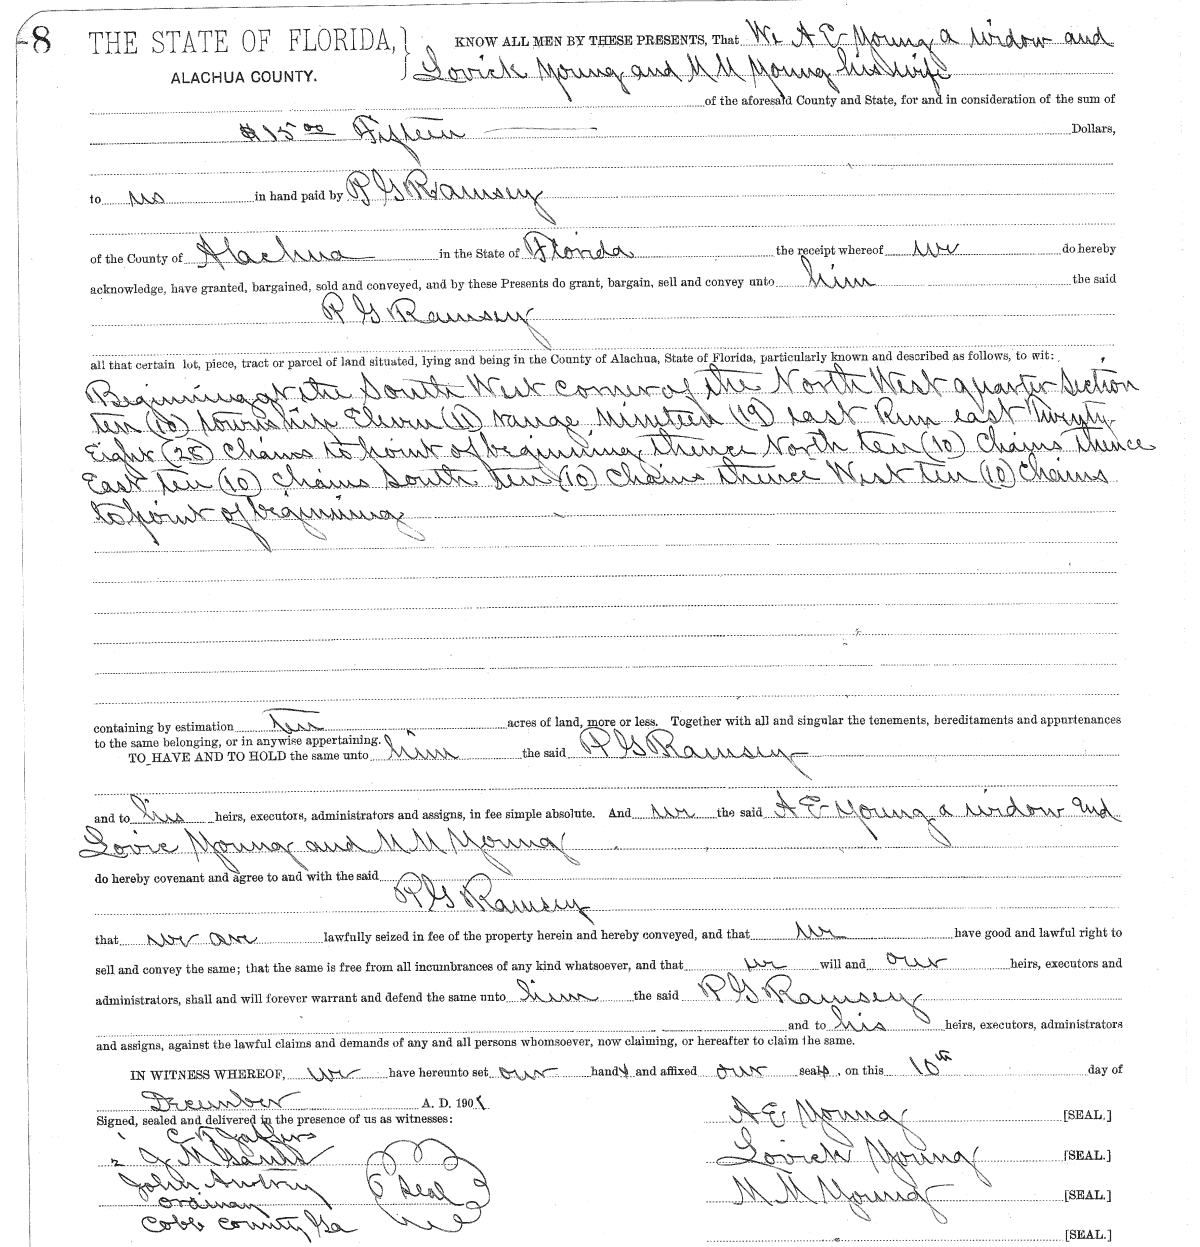 -8
THE STATE OF FLORIDA, } KNOW ALL MEN BY THESE PRESENTS, That We A E Young a widow and
ALACHUA COUNTY. Lovick Young and M M Young his wife
of the aforesaid County and State, for and in consideration of the sum of
$15 00 Fifteen Dollars,
to us in hand paid by R G Ramsey
of the County of Alachua in the State of Florida the receipt whereof we do hereby
acknowledge, have granted, bargained, sold and conveyed, and by these Presents do grant, bargain, sell and convey unto him the said
R G Ramsey
all that certain lot, piece, tract or parcel of land situated, lying and being in the County of Alachua, State of Florida, particularly known and described as follows, to wit:
Beginning at the South West corner of the North West quarter Section
ten (10) township Eleven (11) range nineteen (19) east Run east Twenty
Eight (28) chains to point of beginning thence North ten (10) chains thence
East ten (10) chains South ten (10) chains thence West ten (10) chains
to point of beginning
containing by estimation ten acres of land, more or less. Together with all and singular the tenements, hereditaments and appurtenances
to the same belonging, or in anywise appertaining.
TO HAVE AND TO HOLD the same unto him the said R G Ramsey
and to his heirs, executors, administrators and assigns, in fee simple absolute. And we the said A E Young a widow and
Lovic Young and M M Young
do hereby covenant and agree to and with the said
R G Ramsey
that we are lawfully seized in fee of the property herein and hereby conveyed, and that we have good and lawful right to
sell and convey the same; that the same is free from all incumbrances of any kind whatsoever, and that we will and our heirs, executors and
administrators, shall and will forever warrant and defend the same unto him the said R G Ramsey
and to his heirs, executors, administrators
and assigns, against the lawful claims and demands of any and all persons whomsoever, now claiming, or hereafter to claim the same.
IN WITNESS WHEREOF, we have hereunto set our hands and affixed our seals, on this 10th day of
December A. D. 190
Signed, sealed and delivered in the presence of us as witnesses: A E Young [SEAL.]
Lovick Young [SEAL.]
M M Young [SEAL.]
[SEAL.]
J M
John
Ordinary Seal
Cobb County Ga